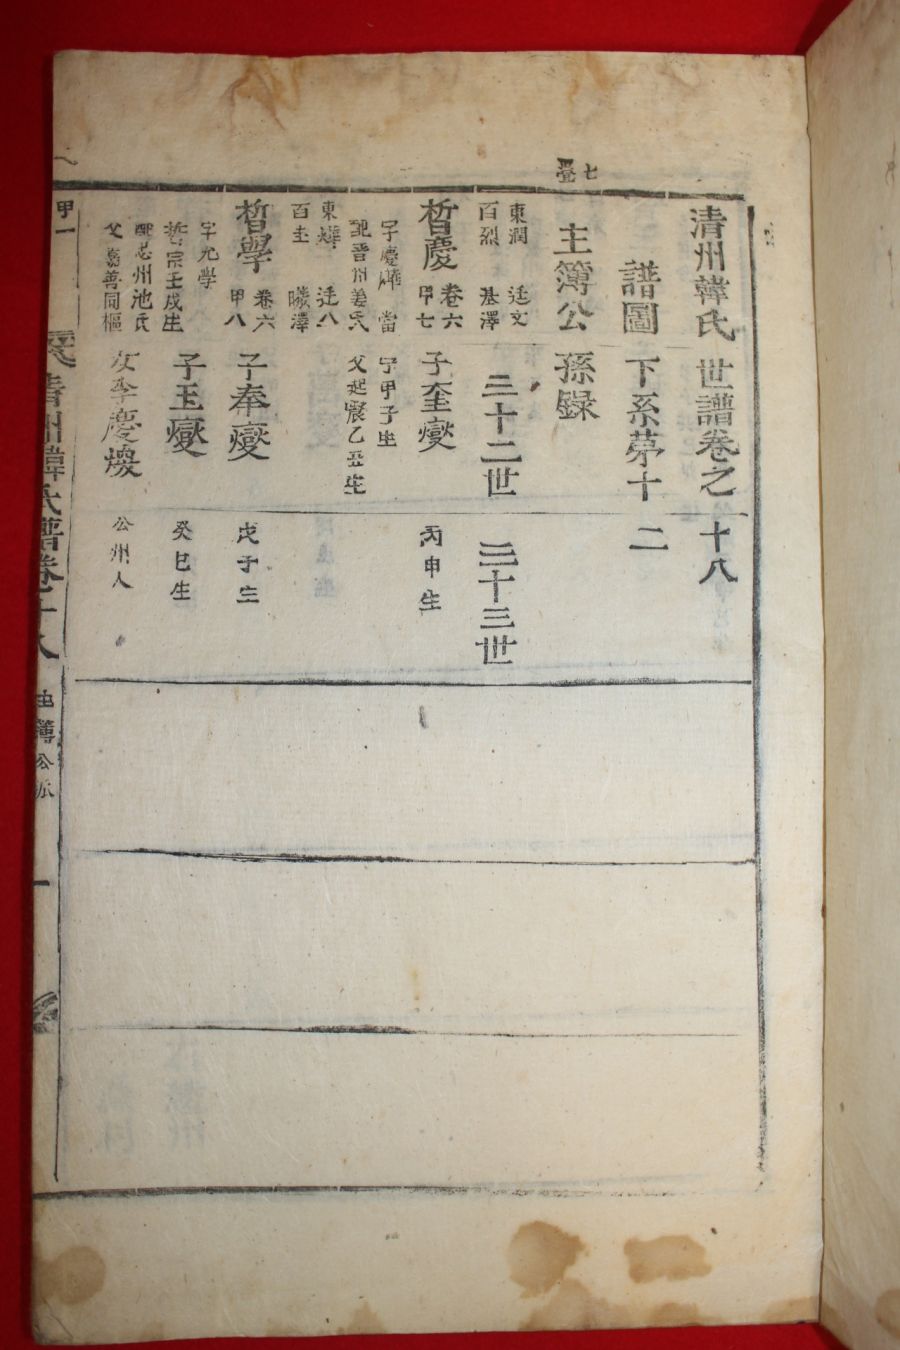 七
清州韓氏世譜卷之十八
譜圖下系苐十二
主簿公孫錄
三十二世
三十三世
東潤 廷文
百烈 基澤
晳慶 卷六 甲七
子奎燮
丙申生
字慶燁
配晋州姜氏
字甲子生
父起震乙丑生
東燁 廷八
百圭
晳學 卷六 甲八
子奉燮
戊子生
字允學
哲宗壬戌生
子玉燮
癸巳生
配忠州池氏
父嘉善同樞
女李慶煥
公州人
甲一
清州韓氏譜卷十八
主簿公派
一